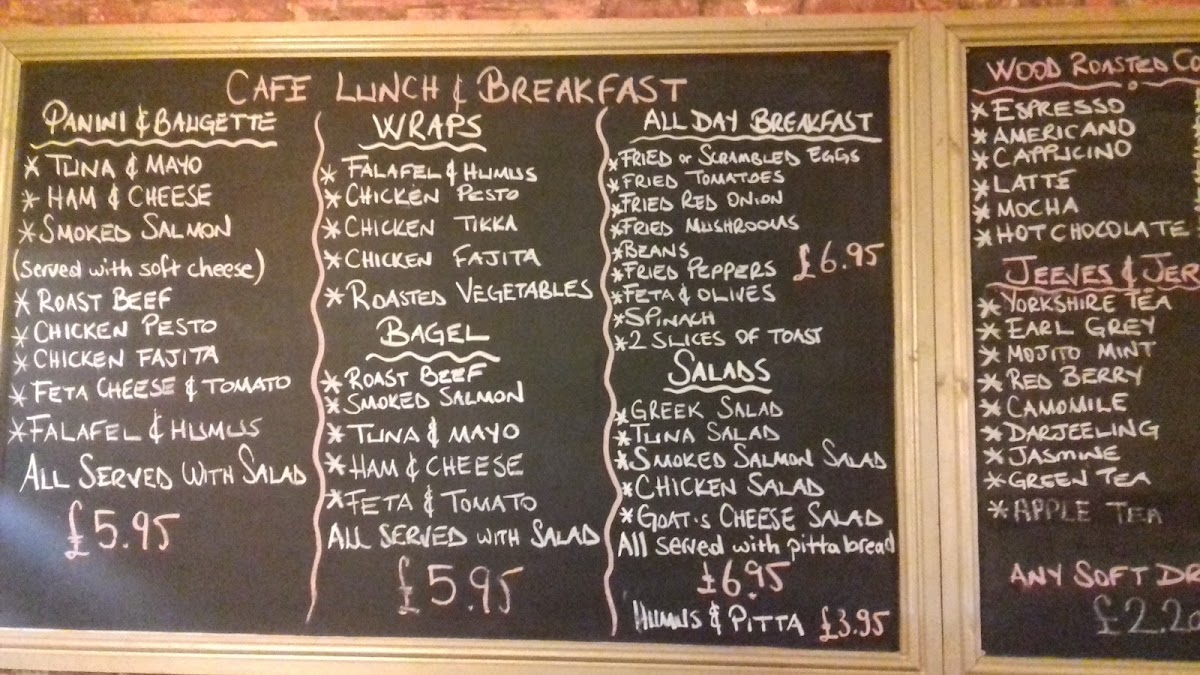 CAFE LUNCH & BREAKFAST
PANINI & BAUGETTE
* TUNA & MAYO
* HAM & CHEESE
* SMOKED SALMON
(served with soft cheese)
* ROAST BEEF
* CHICKEN PESTO
* CHICKEN FAJITA
* FETA CHEESE & TOMATO
* FALAFEL & HUMUS
ALL SERVED WITH SALAD
£5.95
WRAPS
* FALAFEL & HUMUS
* CHICKEN PESTO
* CHICKEN TIKKA
* CHICKEN FAJITA
* ROASTED VEGETABLES
BAGEL
* ROAST BEEF
* SMOKED SALMON
* TUNA & MAYO
* HAM & CHEESE
* FETA & TOMATO
ALL SERVED WITH SALAD
£5.95
ALL DAY BREAKFAST
* FRIED or SCRAMBLED EGGS
* FRIED TOMATOES
* FRIED RED ONION
* FRIED MUSHROOMS
* BEANS
* FRIED PEPPERS £6.95
* FETA & OLIVES
* SPINACH
* 2 SLICES OF TOAST
SALADS
* GREEK SALAD
* TUNA SALAD
* SMOKED SALMON SALAD
* CHICKEN SALAD
* GOAT'S CHEESE SALAD
All served with pitta bread
£6.95
HUMUS & PITTA £3.95
WOOD ROASTED CO
* ESPRESSO
* AMERICANO
* CAPPUCINO
* LATTE
* MOCHA
* HOT CHOCOLATE
JEEVES & JER
* YORKSHIRE TEA
* EARL GREY
* MOJITO MINT
* RED BERRY
* CAMOMILE
* DARJEELING
* JASMINE
* GREEN TEA
* APPLE TEA
ANY SOFT DR
£2.20